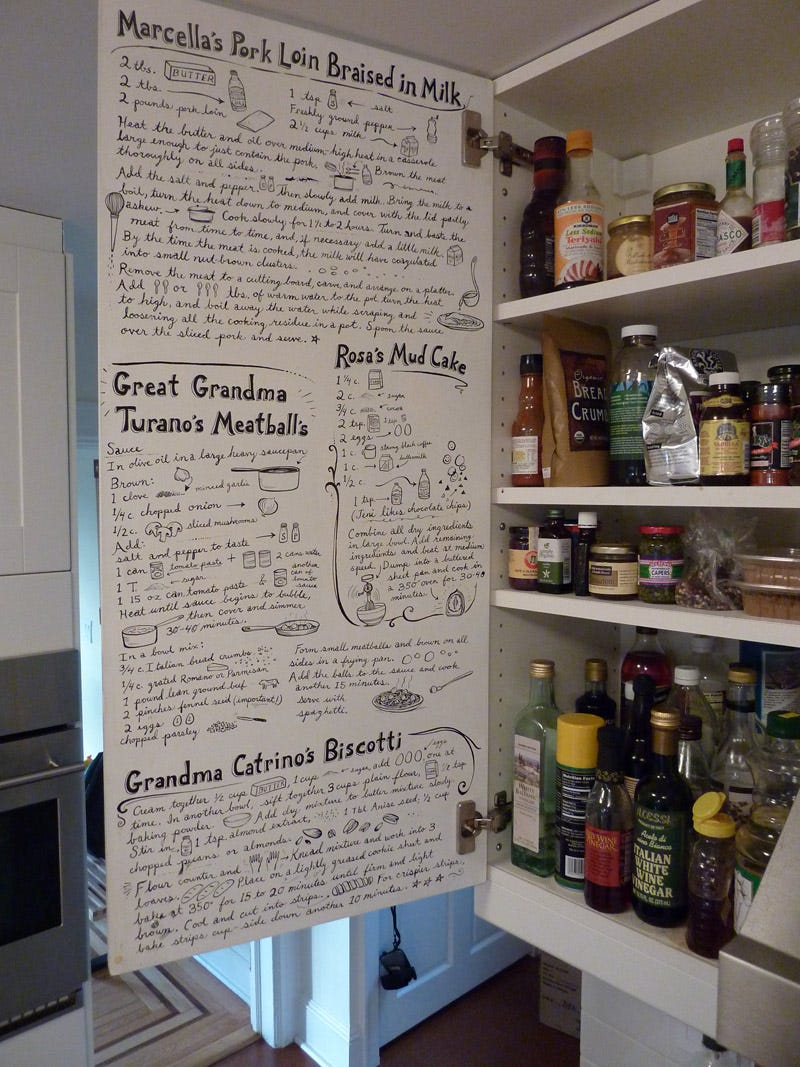 Marcella's Pork Loin Braised in Milk
2 tbs. BUTTER
2 tbs.
2 pounds pork loin
1 tsp salt
Freshly ground pepper
2 ½ cups milk
Heat the butter and oil over medium-high heat in a casserole
large enough to just contain the pork. Brown the meat
thoroughly on all sides.
Add the salt and pepper. Then slowly add milk. Bring the milk to a
boil, turn the heat down to medium, and cover with the lid partly
askew. Cook slowly for 1½ to 2 hours. Turn and baste the
meat from time to time, and, if necessary add a little milk.
By the time the meat is cooked, the milk will have coagulated
into small nut-brown clusters.
Remove the meat to a cutting board, carve, and arrange on a platter.
Add or tbs. of warm water to the pot, turn the heat
to high, and boil away the water while scraping and
loosening all the cooking residue in a pot. Spoon the sauce
over the sliced pork and serve.
Great Grandma
Turano's Meatball's
Sauce
In olive oil in a large heavy saucepan
Brown:
1 clove minced garlic
¼ c. chopped onion
½ c. sliced mushrooms
Add:
salt and pepper to taste S P
1 can tomato paste + 2 cans water
1 T. sugar
1 15 oz can tomato paste & another can of tomato sauce
Heat until sauce begins to bubble,
then cover and simmer
30-40 minutes.
In a bowl mix:
¾ c. Italian bread crumbs
¼ c. grated Romano or Parmesan
1 pound lean ground beef
2 pinches fennel seed (important!)
2 eggs
chopped parsley
Form small meatballs and brown on all
sides in a frying pan.
Add the balls to the sauce and cook
another 15 minutes.
Serve with
spaghetti.
Rosa's Mud Cake
1 ¾ c.
2 c. sugar
¾ c. cocoa
2 tsp
2 eggs
1 c. strong black coffee
1 c. buttermilk
½ c.
1 tsp
(Jeni likes chocolate chips)
Combine all dry ingredients
in large bowl. Add remaining
ingredients and beat at medium
speed. Dump into a buttered
sheet pan and cook in
a 350° oven for 30-40
minutes.
Grandma Catrino's Biscotti
Cream together ½ cup BUTTER, 1 cup sugar, add eggs one at
time. In another bowl, sift together 3 cups plain flour, ½ tsp
baking powder. Add dry mixture to butter mixture slowly.
Stir in 1 tsp. almond extract, 1 Tbl Anise seed, ½ cup
chopped pecans or almonds.
Flour counter and Knead mixture and work into 3
loaves. Place on a lightly greased cookie sheet and
bake at 350° for 15 to 20 minutes until firm and light
brown. Cool and cut into strips. For crispier strips,
bake strips cup-side down another 10 minutes.
KIKKOMAN
Less Sodium
Teriyaki
Organic
BREAD
CRUMBS
CAPERS
Nutrition Facts
RED WINE
VINEGAR
ALESSI
Aceto di
Vino Bianco
ITALIAN
WHITE
WINE
VINEGAR